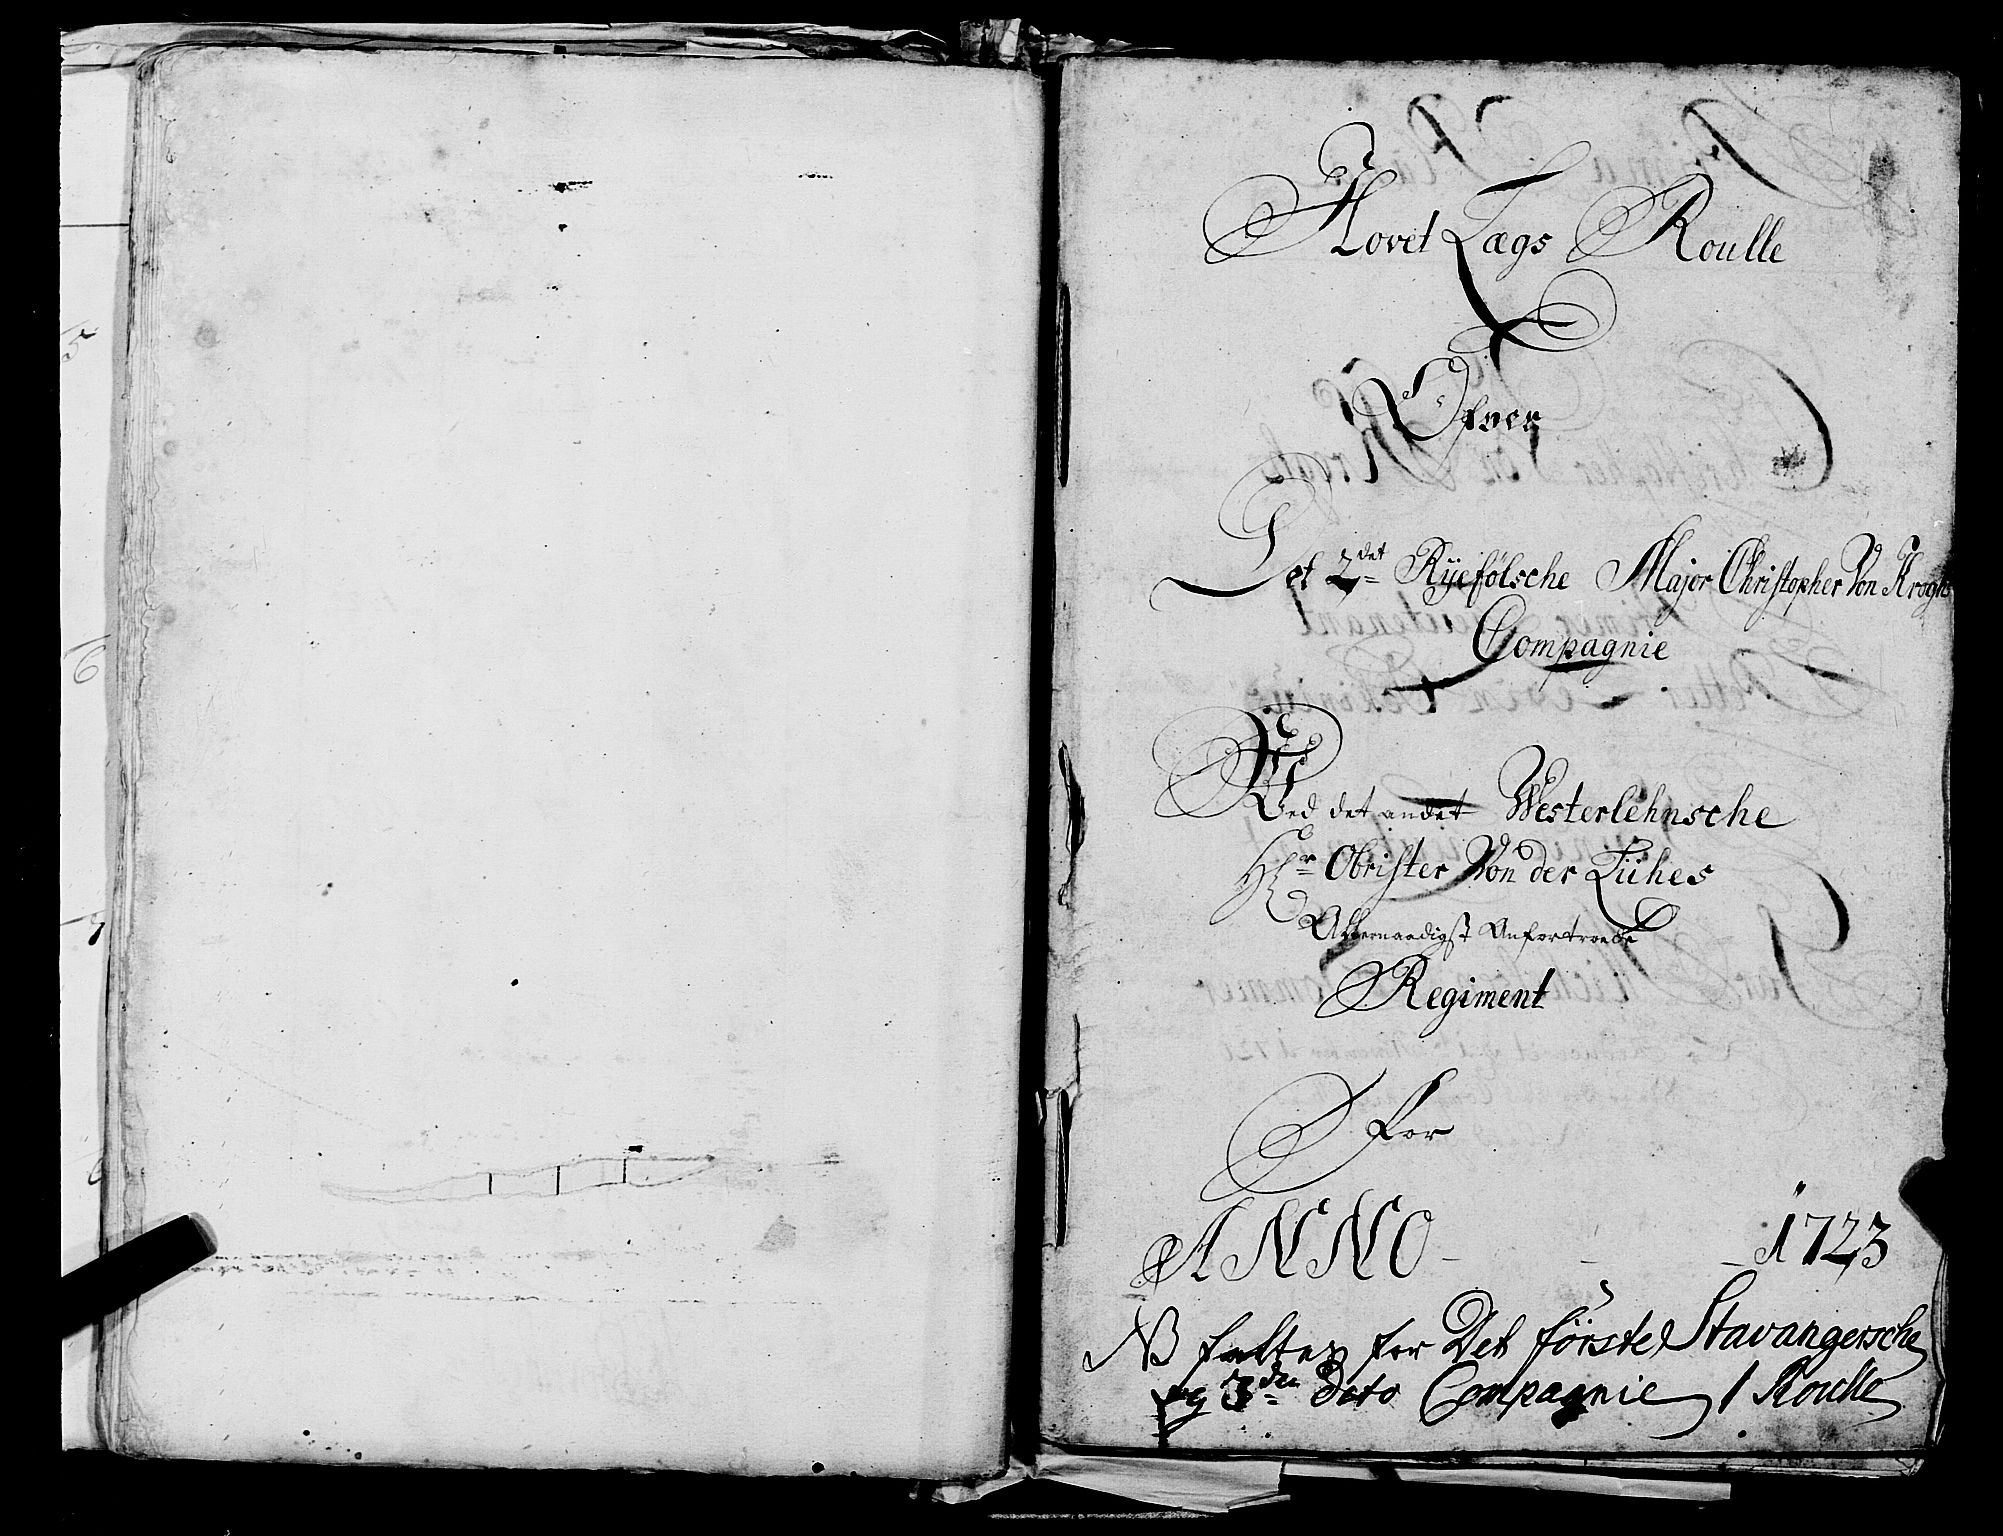 Hovet Lægs Roulle
Ofver
Det 2det Ryefølsche Major Christopher Von Kroghs
Compagnie
Ved det andet Westerlehnsche
Hr Obrister Von der Lühes
Allernaadigst Anfortroede
Regiment
For
ANNO - - - 1723
NB for Det förste Stavangersche
og 3die Dito Compagnie 1 Roulle
5
6
7